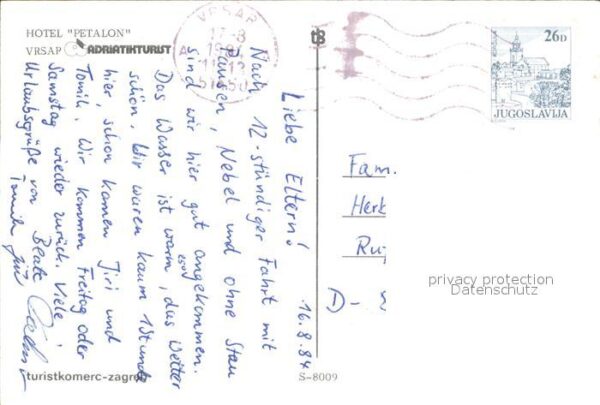 HOTEL "PETALON"
VRSAR ADRIATIKTURIST
VRSAR
17-8
JUGOSLAVIJA
26D
Liebe Eltern!
16.8.84
Nach 12-stündiger Fahrt mit
Pausen, Nebel und ohne Stau
sind wir hier gut angekommen.
Das Wasser ist warm, das Wetter
schön. Wir waren kaum 1 Stunde
hier, schon kamen Jiri und
Tomik. Wir kommen Freitag oder
Samstag wieder zurück. Viele
Urlaubsgrüße von Beate
Fam.
Herb
Ru
D-
privacy protection
Datenschutz
turistkomerc-zagreb
S-8009